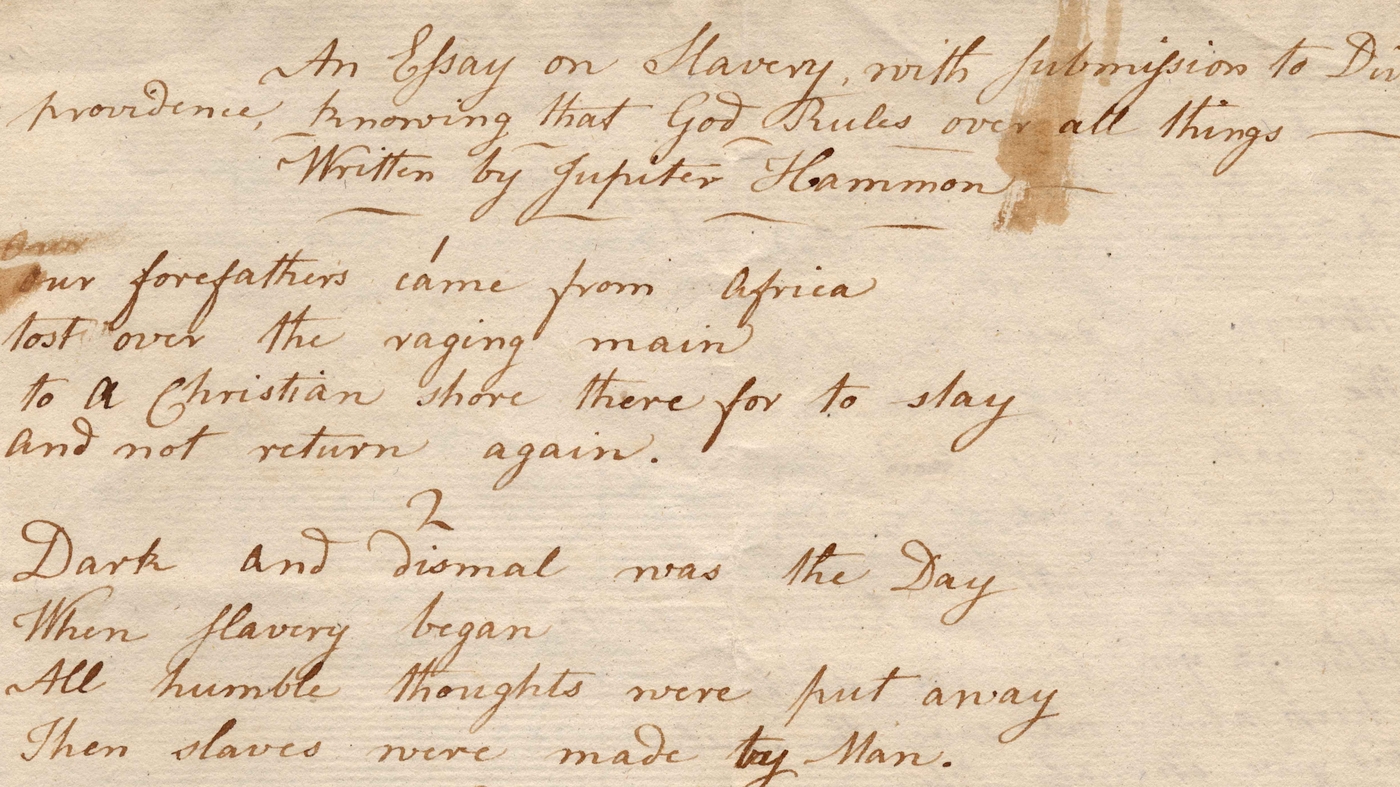 An Essay on Slavery, with submission to Div
providence, knowing that God Rules over all things —
Written by Jupiter Hammon —
1
our forefathers came from africa
tost over the raging main
to a Christian shore there for to stay
and not return again.
2
Dark and dismal was the Day
When slavery began
All humble thoughts were put away
Then slaves were made by Man.